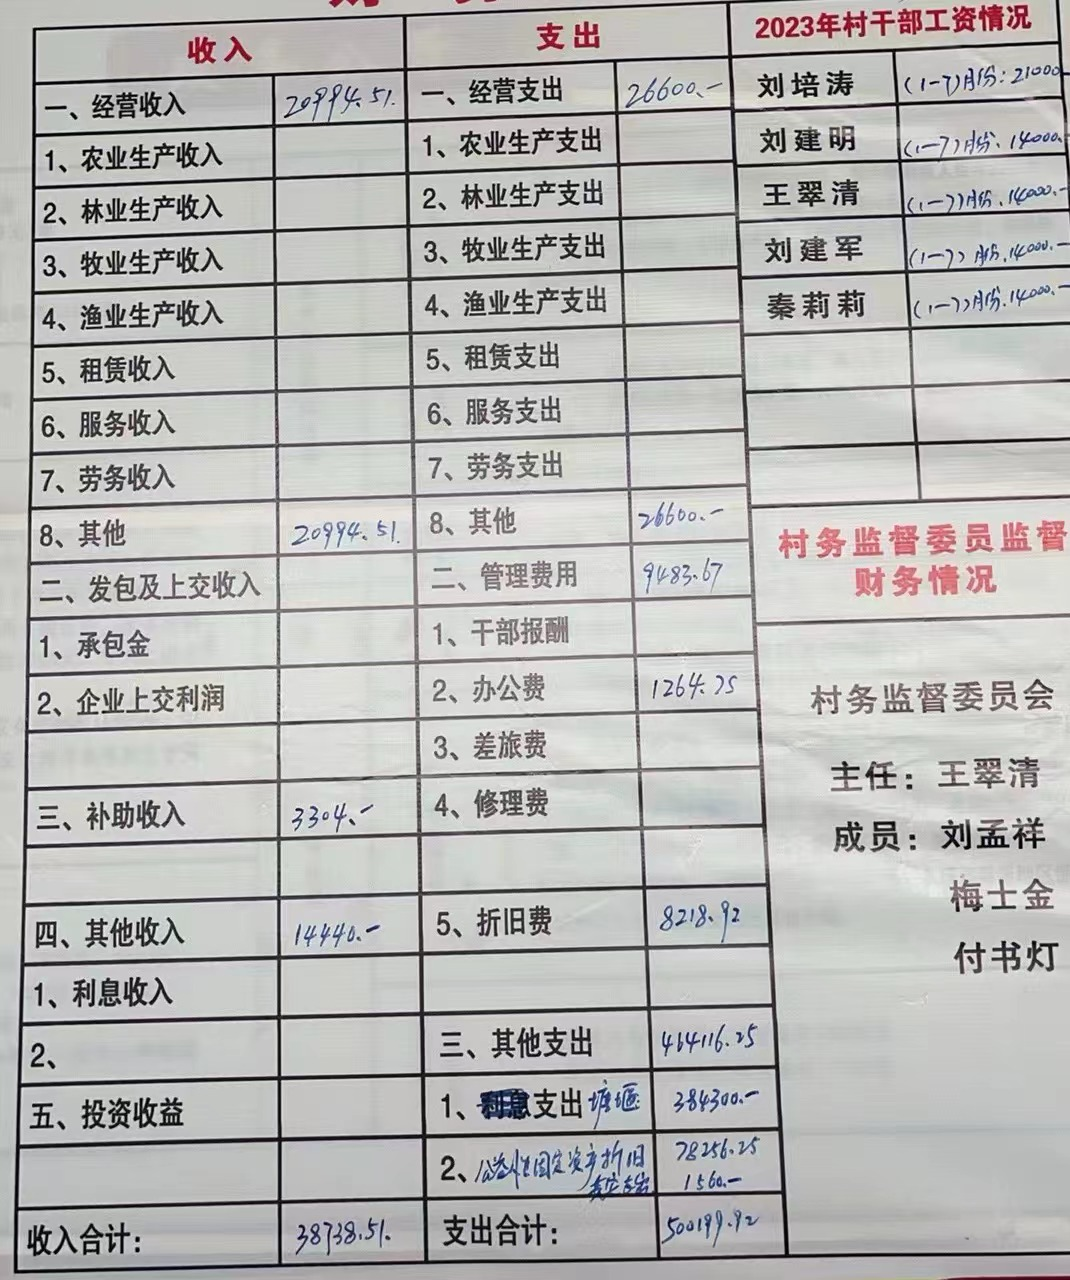 收入
一、经营收入 20994.51.
1、农业生产收入
2、林业生产收入
3、牧业生产收入
4、渔业生产收入
5、租赁收入
6、服务收入
7、劳务收入
8、其他 20994.51.
二、发包及上交收入
1、承包金
2、企业上交利润
三、补助收入 3304.-
四、其他收入 14440.-
1、利息收入
2、
五、投资收益
收入合计: 38738.51.
支出
一、经营支出 26600.-
1、农业生产支出
2、林业生产支出
3、牧业生产支出
4、渔业生产支出
5、租赁支出
6、服务支出
7、劳务支出
8、其他 26600.-
二、管理费用 9483.67
1、干部报酬
2、办公费 1264.75
3、差旅费
4、修理费
5、折旧费 8218.92
三、其他支出 464116.25
1、利息支出 塘堰 384300.-
2、公益性固定资产折旧 78256.25
支出 1560.-
支出合计: 500199.92
2023年村干部工资情况
刘培涛 (1-7)月份:21000
刘建明 (1-7)月份.14000.
王翠清 (1-7)月份.14000.-
刘建军 (1-7)月份.14000.-
秦莉莉 (1-7)月份.14000.-
村务监督委员监督
财务情况
村务监督委员会
主任: 王翠清
成员: 刘孟祥
梅士金
付书灯